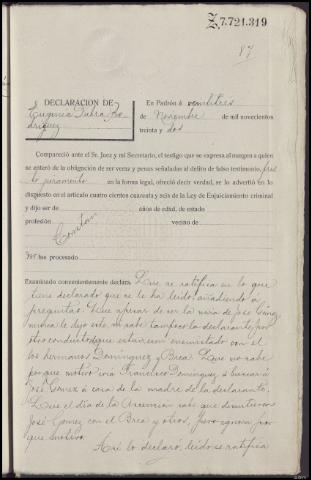 Z,7.721.319
87
DECLARACION DE
Eugenia Dabra Ro-
driguez
En Padrón á veintitres
de Noviembre de mil novecientos
treinta y dos
Compareció ante el Sr. Juez y mi Secretario, el testigo que se expresa al margen a quien
se enteró de la obligación de ser veraz y penas señaladas al delito de falso testimonio, pres
to juramento en la forma legal, ofreció decir verdad, se le advertió en lo
dispuesto en el artículo cuatro cientos cuarenta y seis de la Ley de Enjuiciamiento criminal
y dijo ser de años de edad, de estado
profesión vecino de
Constan
procesado
Examinado convenientemente declara: Que se ratifica en lo que
tiene declarado que se le ha leido; añadiendo a
preguntas: Que apesar de ser la novia de José Gómez
nunca le dijo este, ni sabe tampoco la declarante por
otro conducto, que estuviesen enemistado con el
los hermanos Dominguez y Brea. Que no sabe
porque motivo iria Francisco Dominguez a buscar a
José Gómez a casa de la madre de la declarante.
Que el dia de la sabe que discutieron
José Gomez con el Brea y otros, pero ignora por
que motivo.
Asi lo declaró, leido se ratifica